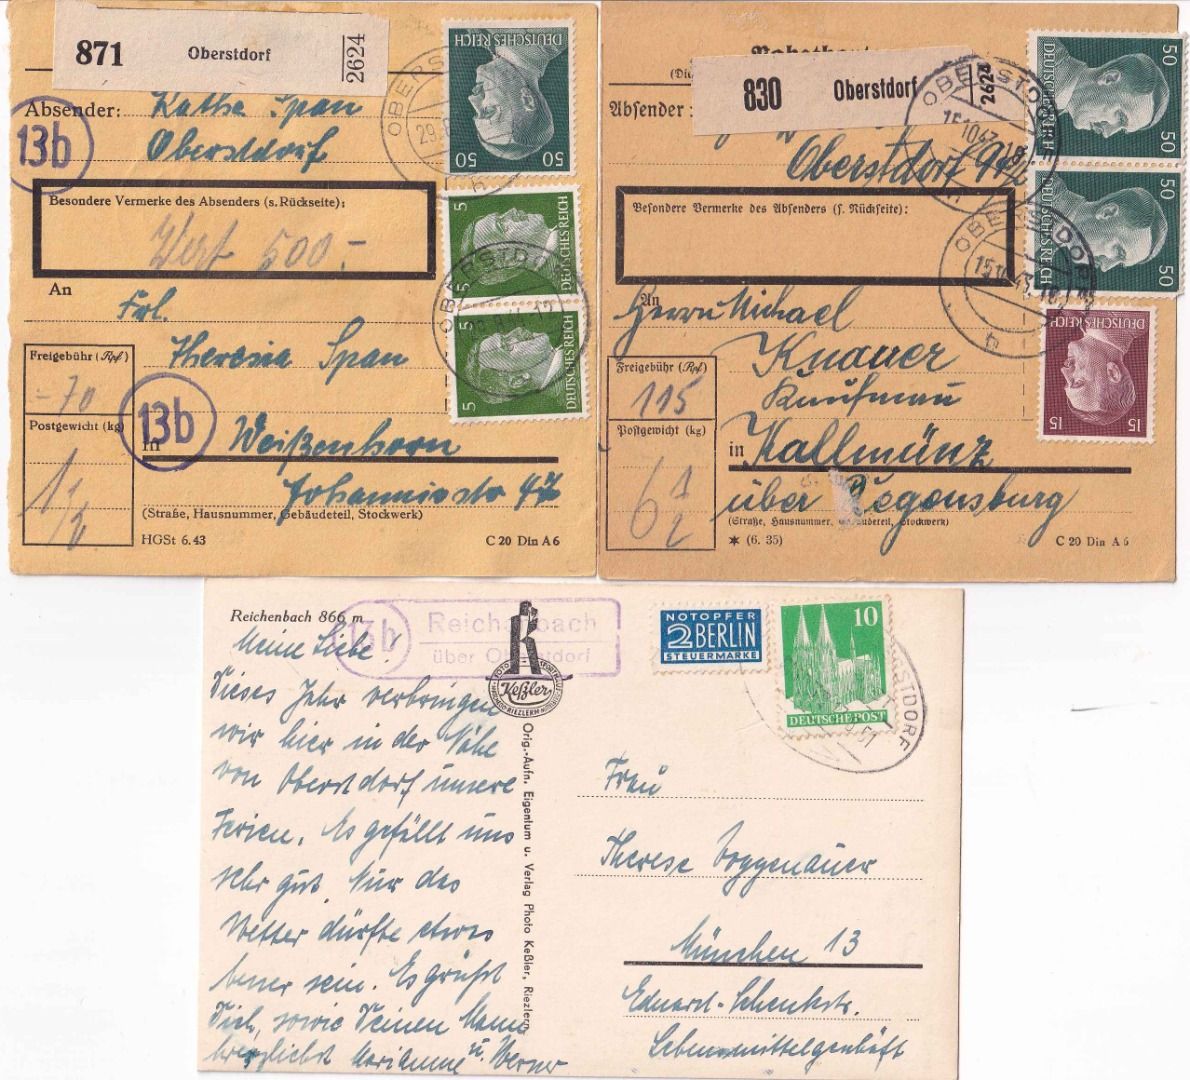 871 Oberstdorf 2624
Absender: Kathe Span
Oberstdorf
13b
Besondere Vermerke des Absenders (s. Rückseite):
Wert 500.-
An
Frl.
Theresia Span
Freigebühr (Rpf)
-70
Postgewicht (kg)
1 1/2
13b
in Weißenhorn
Johannisstr 47
(Straße, Hausnummer, Gebäudeteil, Stockwerk)
HGSt 6.43 C 20 Din A 6
OBERSTDORF
DEUTSCHES REICH 50 50
5 DEUTSCHES REICH
OBERSTDORF
5 DEUTSCHES REICH
830 Oberstdorf 2624
Absender:
Oberstdorf
Besondere Vermerke des Absenders (s. Rückseite):
An
Herrn Michael
Knauer
Kaufmann
Freigebühr (Rpf)
115
Postgewicht (kg)
6 1/2
in Kallmünz
über Regensburg
(Straße, Hausnummer, Gebäudeteil, Stockwerk)
* (6. 35) C 20 Din A 6
OBERSTDORF
15.10.43.18
DEUTSCHES REICH 50 50
OBERSTDORF
15.10.43.18
DEUTSCHES REICH 50 50
DEUTSCHES REICH 15 15
Reichenbach 866 m
13b Reichenbach
über Oberstdorf
Keßler
Meine Liebe!
Dieses Jahr verbringen
wir hier in der Nähe
von Oberstdorf unsere
Ferien. Es gefällt uns
sehr gut. Nur das
Wetter dürfte etwas
besser sein. Es grüßt
Dich, sowie Deinen Mann
herzlichst Marianne u. Werner
Orig.-Aufn. Eigentum u. Verlag Photo Keßler, Riezlern
NOTOPFER
2 BERLIN
STEUERMARKE
10
DEUTSCHE POST
Frau
Therese
München 13
Eduard-Schenkstr.
Lebensmittelgeschäft